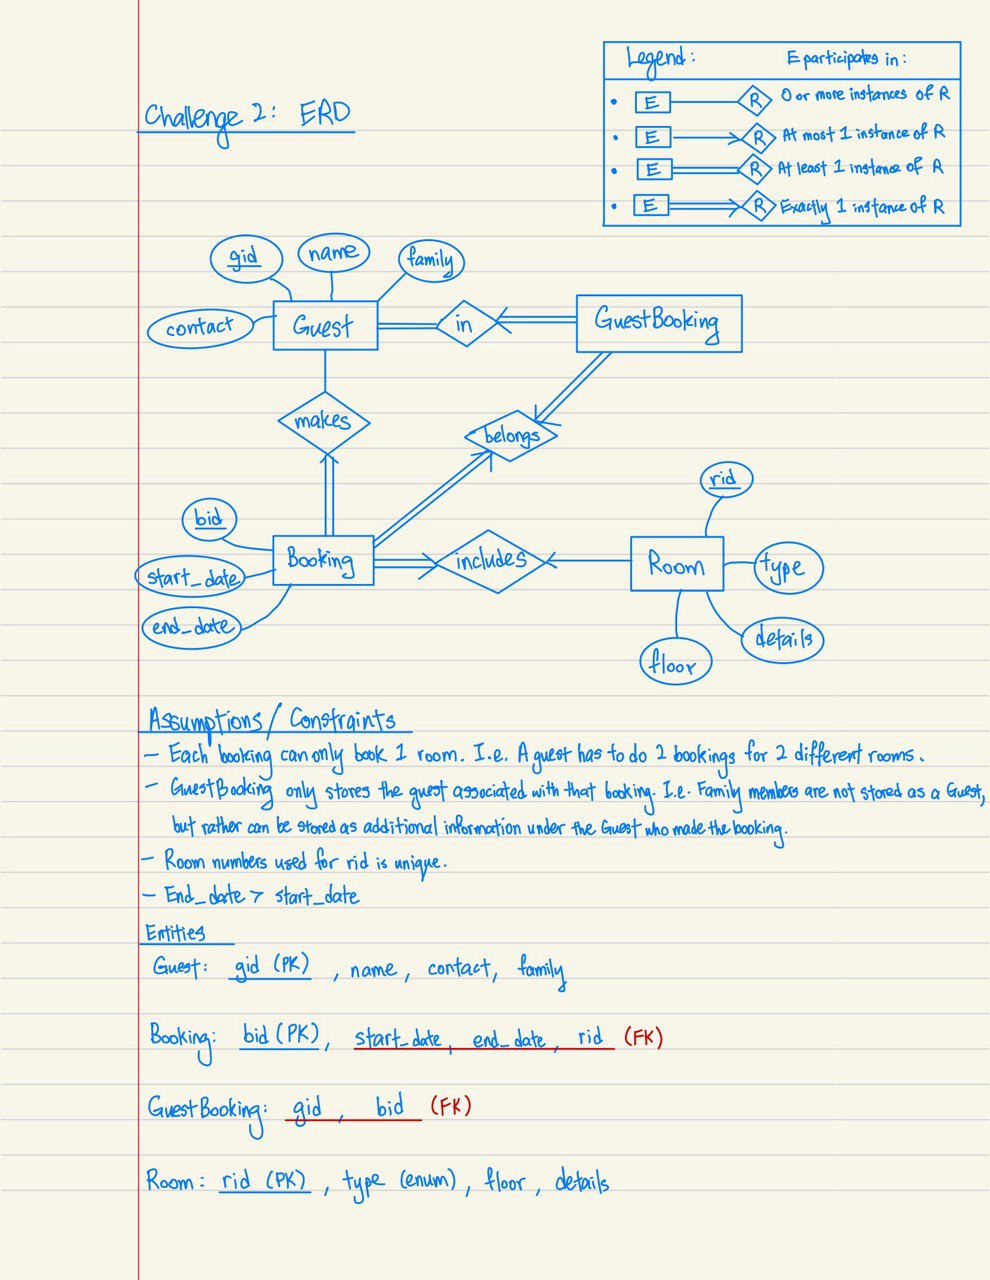 Legend: E participates in:
• E R 0 or more instances of R
• E R At most 1 instance of R
• E R At least 1 instance of R
• E R Exactly 1 instance of R
Challenge 2: ERD
gid name family
contact Guest in GuestBooking
makes belongs
rid
bid
Booking includes Room type
start_date
end_date details
floor
Assumptions/Constraints
- Each booking can only book 1 room. I.e. A guest has to do 2 bookings for 2 different rooms.
- GuestBooking only stores the guest associated with that booking. I.e. Family members are not stored as a Guest,
but rather can be stored as additional information under the Guest who made the booking.
- Room numbers used for rid is unique.
- End_date > start_date
Entities
Guest: gid (PK), name, contact, family
Booking: bid (PK), start_date, end_date, rid (FK)
GuestBooking: gid, bid (FK)
Room: rid (PK), type (enum), floor, details